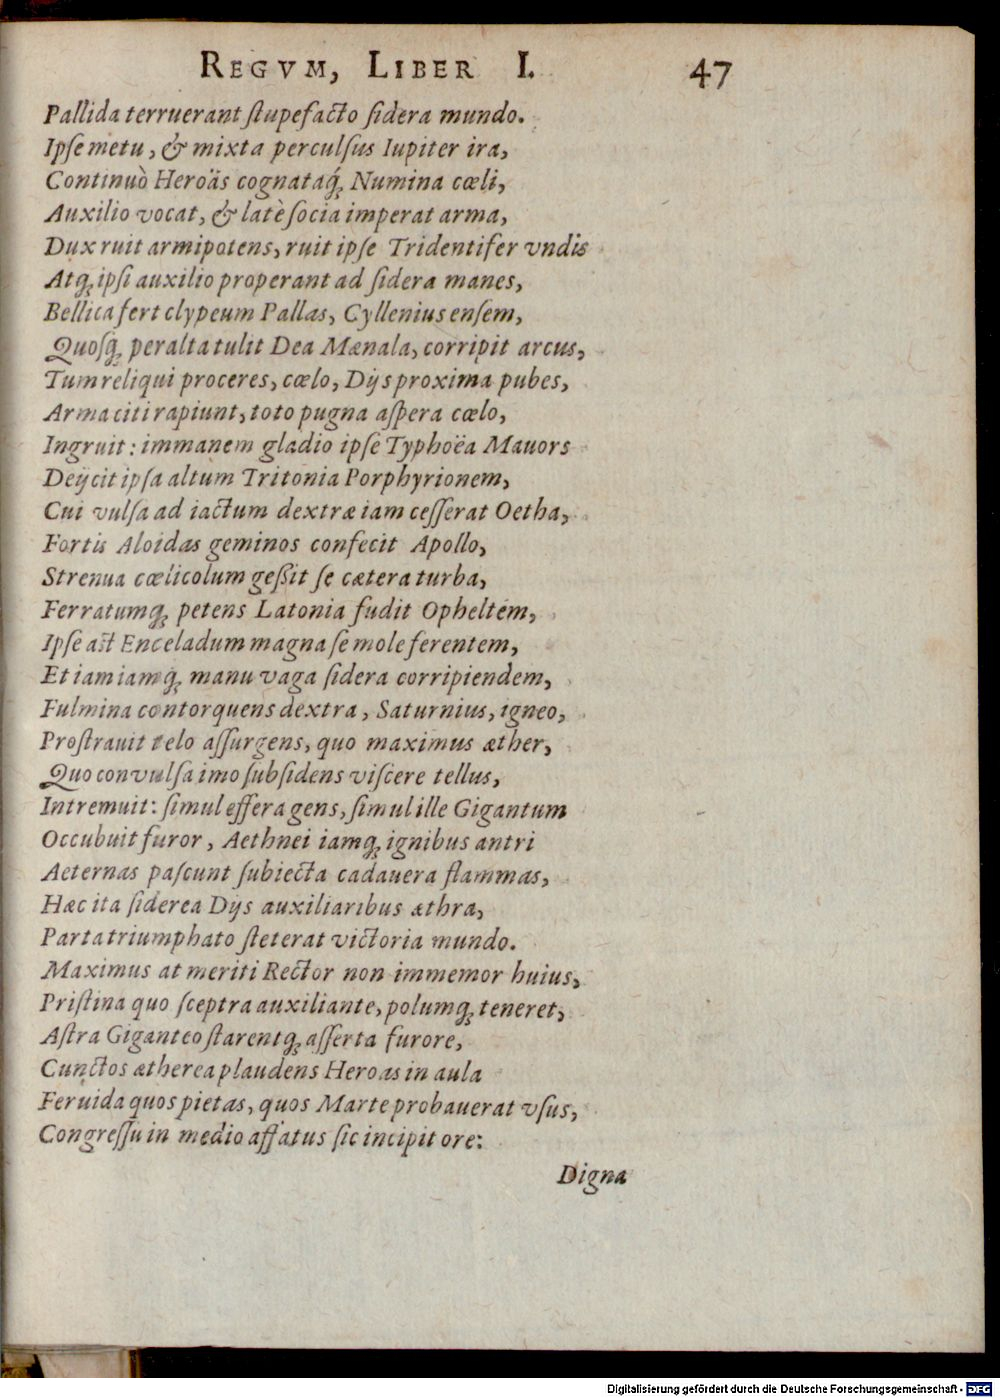 REGVM, LIBER I. 47
Pallida terruerant ſtupefacto ſidera mundo.
Ipſe metu, & mixta perculſus Iupiter ira,
Continuò Heroäs cognataq́; Numina cœli,
Auxilio vocat, & latè ſocia imperat arma,
Dux ruit armipotens, ruit ipſe Tridentifer vndis
Atq; ipſi auxilio properant ad ſidera manes,
Bellica fert clypeum Pallas, Cyllenius enſem,
Quoſq; per alta tulit Dea Mænala, corripit arcus,
Tum reliqui proceres, cœlo, Dijs proxima pubes,
Arma citi rapiunt, toto pugna aſpera cœlo,
Ingruit: immanem gladio ipſe Typhoëa Mauors
Deijcit ipſa altum Tritonia Porphyrionem,
Cui vulſa ad iactum dextræ iam ceſſerat Oetha,
Fortis Aloidas geminos confecit Apollo,
Strenua cœlicolum geßit ſe cætera turba,
Ferratumq; petens Latonia fudit Opheltem,
Ipſe aſt Enceladum magna ſe mole ferentem,
Et iam iamq; manu vaga ſidera corripiendem,
Fulmina contorquens dextra, Saturnius, igneo,
Proſtrauit telo aſſurgens, quo maximus æther,
Quo convulſa imo ſubſidens viſcere tellus,
Intremuit: ſimul effera gens, ſimul ille Gigantum
Occubuit furor, Aethnei iamq; ignibus antri
Aeternas paſcunt ſubiecta cadauera flammas,
Hæc ita ſiderea Dijs auxiliaribus æthra,
Parta triumphato ſteterat victoria mundo.
Maximus at meriti Rector non immemor huius,
Priſtina quo ſceptra auxiliante, polumq; teneret,
Aſtra Giganteo ſtarentq; aſſerta furore,
Cunctos ætherea plaudens Heroas in aula
Feruida quos pietas, quos Marte probauerat vſus,
Congreſſu in medio affatus ſic incipit ore:
Digna
Digitalisierung gefördert durch die Deutsche Forschungsgemeinschaft - DFG